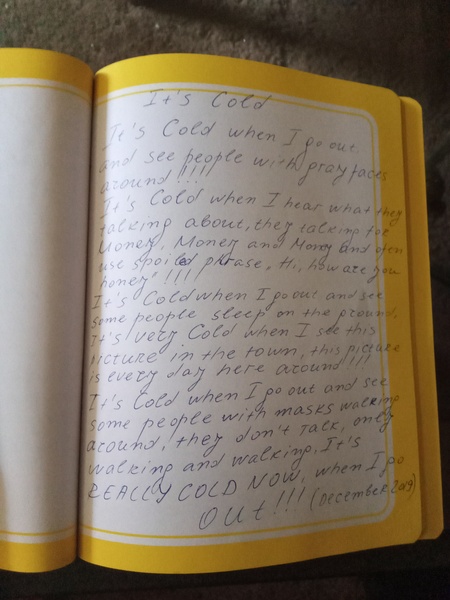 It's Cold
It's Cold when I go out
and see people with gray faces
around!!!!
It's Cold when I hear what they
talking about, they talking for
Money, Money and Money and often
use spoiled phrase, Hi, how are you
honey'!!!!
It's Cold when I go out and see
some people sleep on the ground.
It's very Cold when I see this
picture in the town, this picture
is every day here around!!!!
It's Cold when I go out and see
some people with masks walking
around, they don't talk, only
walking and walking. It's
REALLY COLD NOW, when I go
OUt!!! (December 2019)